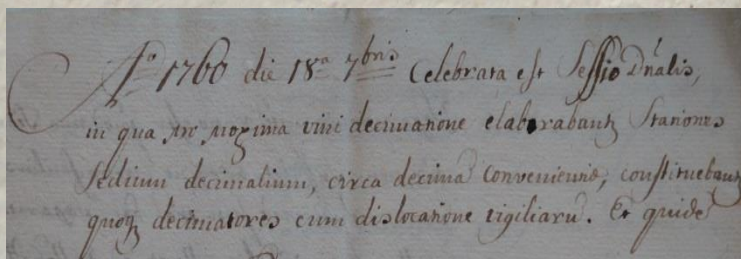 Aº 1760 die 18ª 7bris Celebrata est Sessio Dnalis,
in qua pro proxima vini decimatione elaborabantʒ Stationes
Sedium decimalium, circa decimā Conveniendæ, constituebantʒ
quoqʒ decimatores cum dislocatione vigiliarū. Et quidē